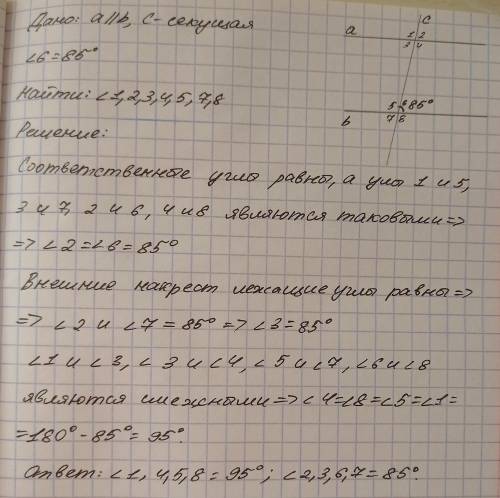 Дано: a//b, c-секущая
∠6=85°
Найти: ∠1,2,3,4,5,7,8
Решение:
Соответственные углы равны, а улы 1 и 5,
3 и 7, 2 и 6, 4 и 8 являются таковыми =>
=> ∠2=∠6=85°
Внешние накрест лежащие углы равны =>
=> ∠2 и ∠7 = 85° => ∠3=85°
∠1 и ∠3, ∠3 и ∠4, ∠5 и ∠7, ∠6 и ∠8
являются смежными => ∠4=∠8=∠5=∠1=
=180°-85°=95°.
Ответ: ∠1,4,5,8=95°; ∠2,3,6,7=85°.
c
a
1 2
3 4
5 6 85°
b
7 8